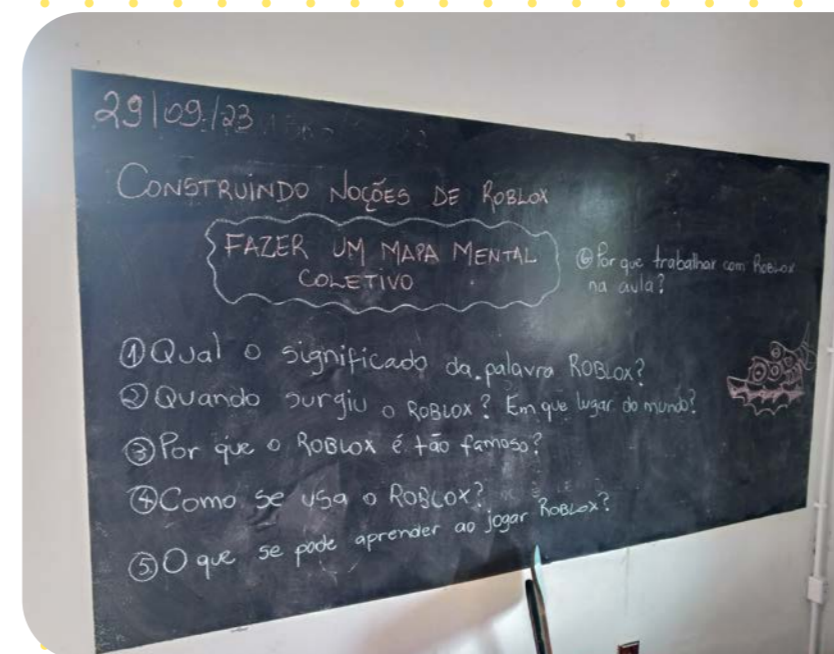 29/09/23
CONSTRUINDO NOÇÕES DE ROBLOX
FAZER UM MAPA MENTAL
COLETIVO
⑥ Por que trabalhar com ROBLOX
na aula?
① Qual o significado da palavra ROBLOX?
② Quando surgiu o ROBLOX? Em que lugar do mundo?
③ Por que o ROBLOX é tão famoso?
④ Como se usa o ROBLOX?
⑤ O que se pode aprender ao jogar ROBLOX?